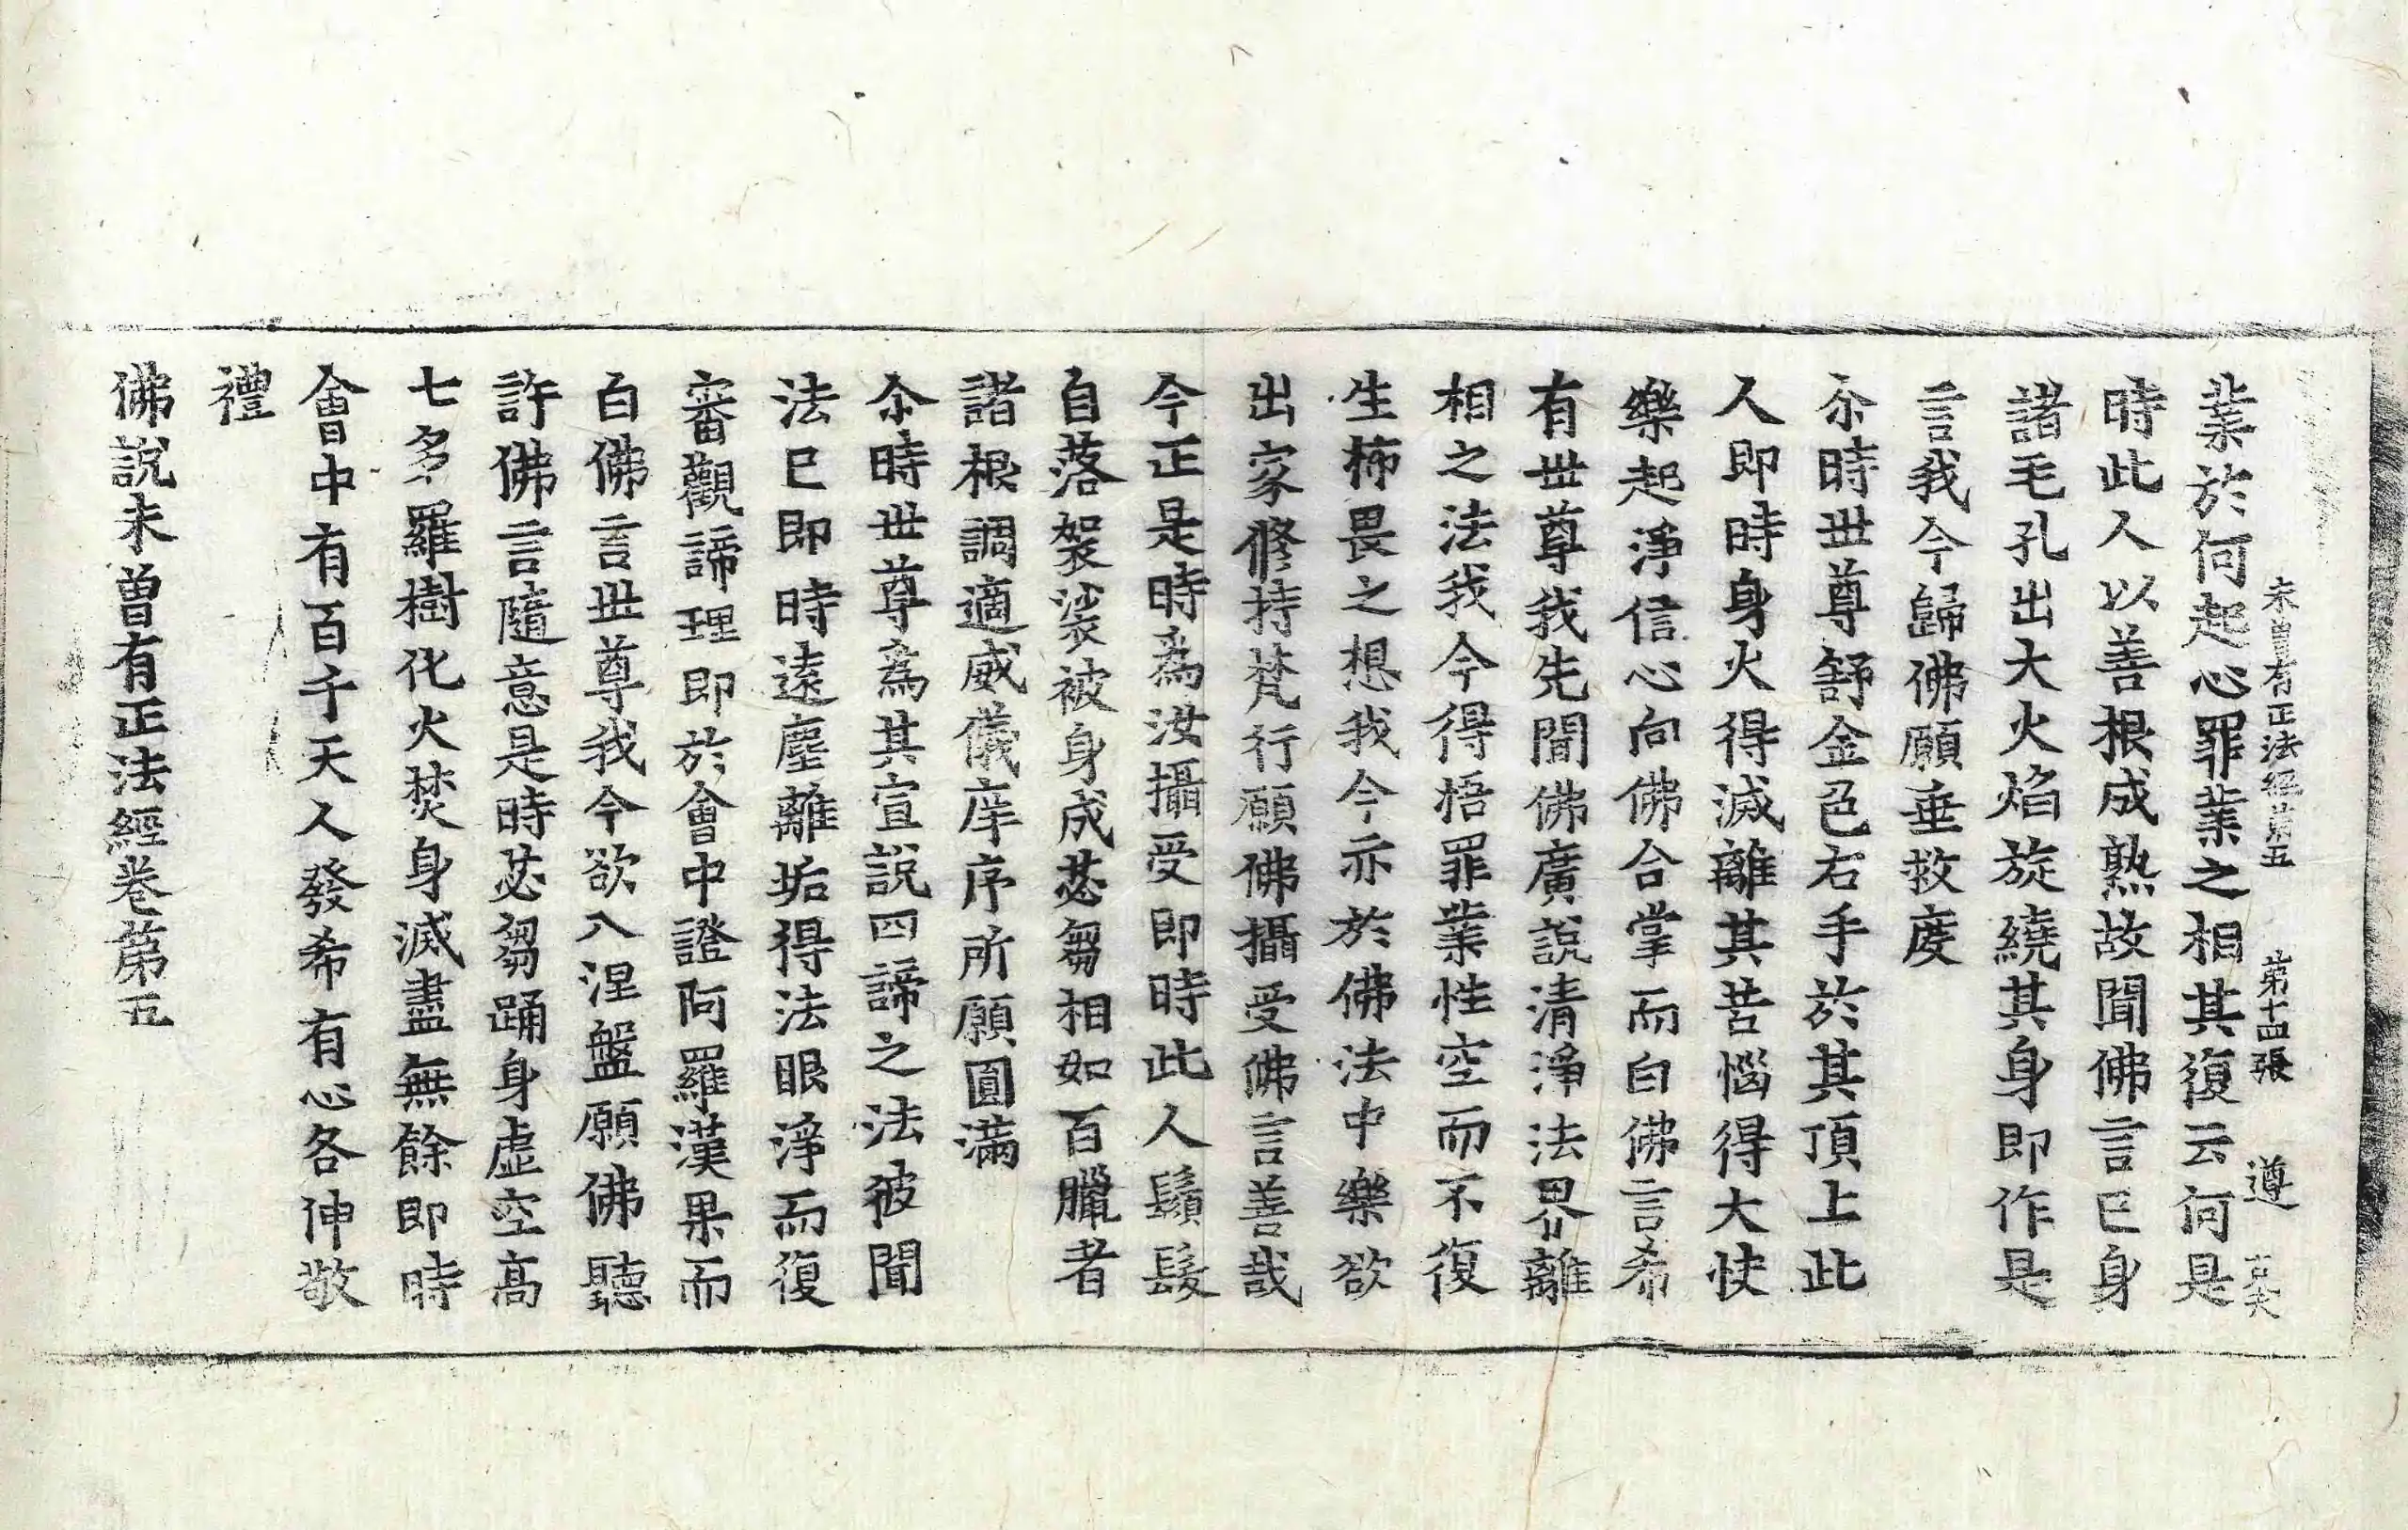 未曾有正法經第五 第十四張 遵
業於何起心罪業之相其復云何是
時此人以善根成熟故聞佛言已身
諸毛孔出大火焰旋繞其身即作是
言我今歸佛願垂救度
尒時世尊舒金色右手於其頂上此
人即時身火得滅離其苦惱得大快
樂起淨信心向佛合掌而白佛言希
有世尊我先聞佛廣說清淨法界離
相之法我今得悟罪業性空而不復
生怖畏之想我今亦於佛法中樂欲
出家修持梵行願佛攝受佛言善哉
今正是時為汝攝受即時此人鬚髮
自落袈裟被身成苾芻相如百臘者
諸根調適威儀庠序所願圓滿
尒時世尊為其宣說四諦之法彼聞
法已即時遠塵離垢得法眼淨而復
審觀諦理即於會中證阿羅漢果而
白佛言世尊我今欲入涅盤願佛聽
許佛言隨意是時苾芻踊身虛空高
七多羅樹化火焚身滅盡無餘即時
會中有百千天人發希有心各伸敬
禮
佛說未曾有正法經卷第五